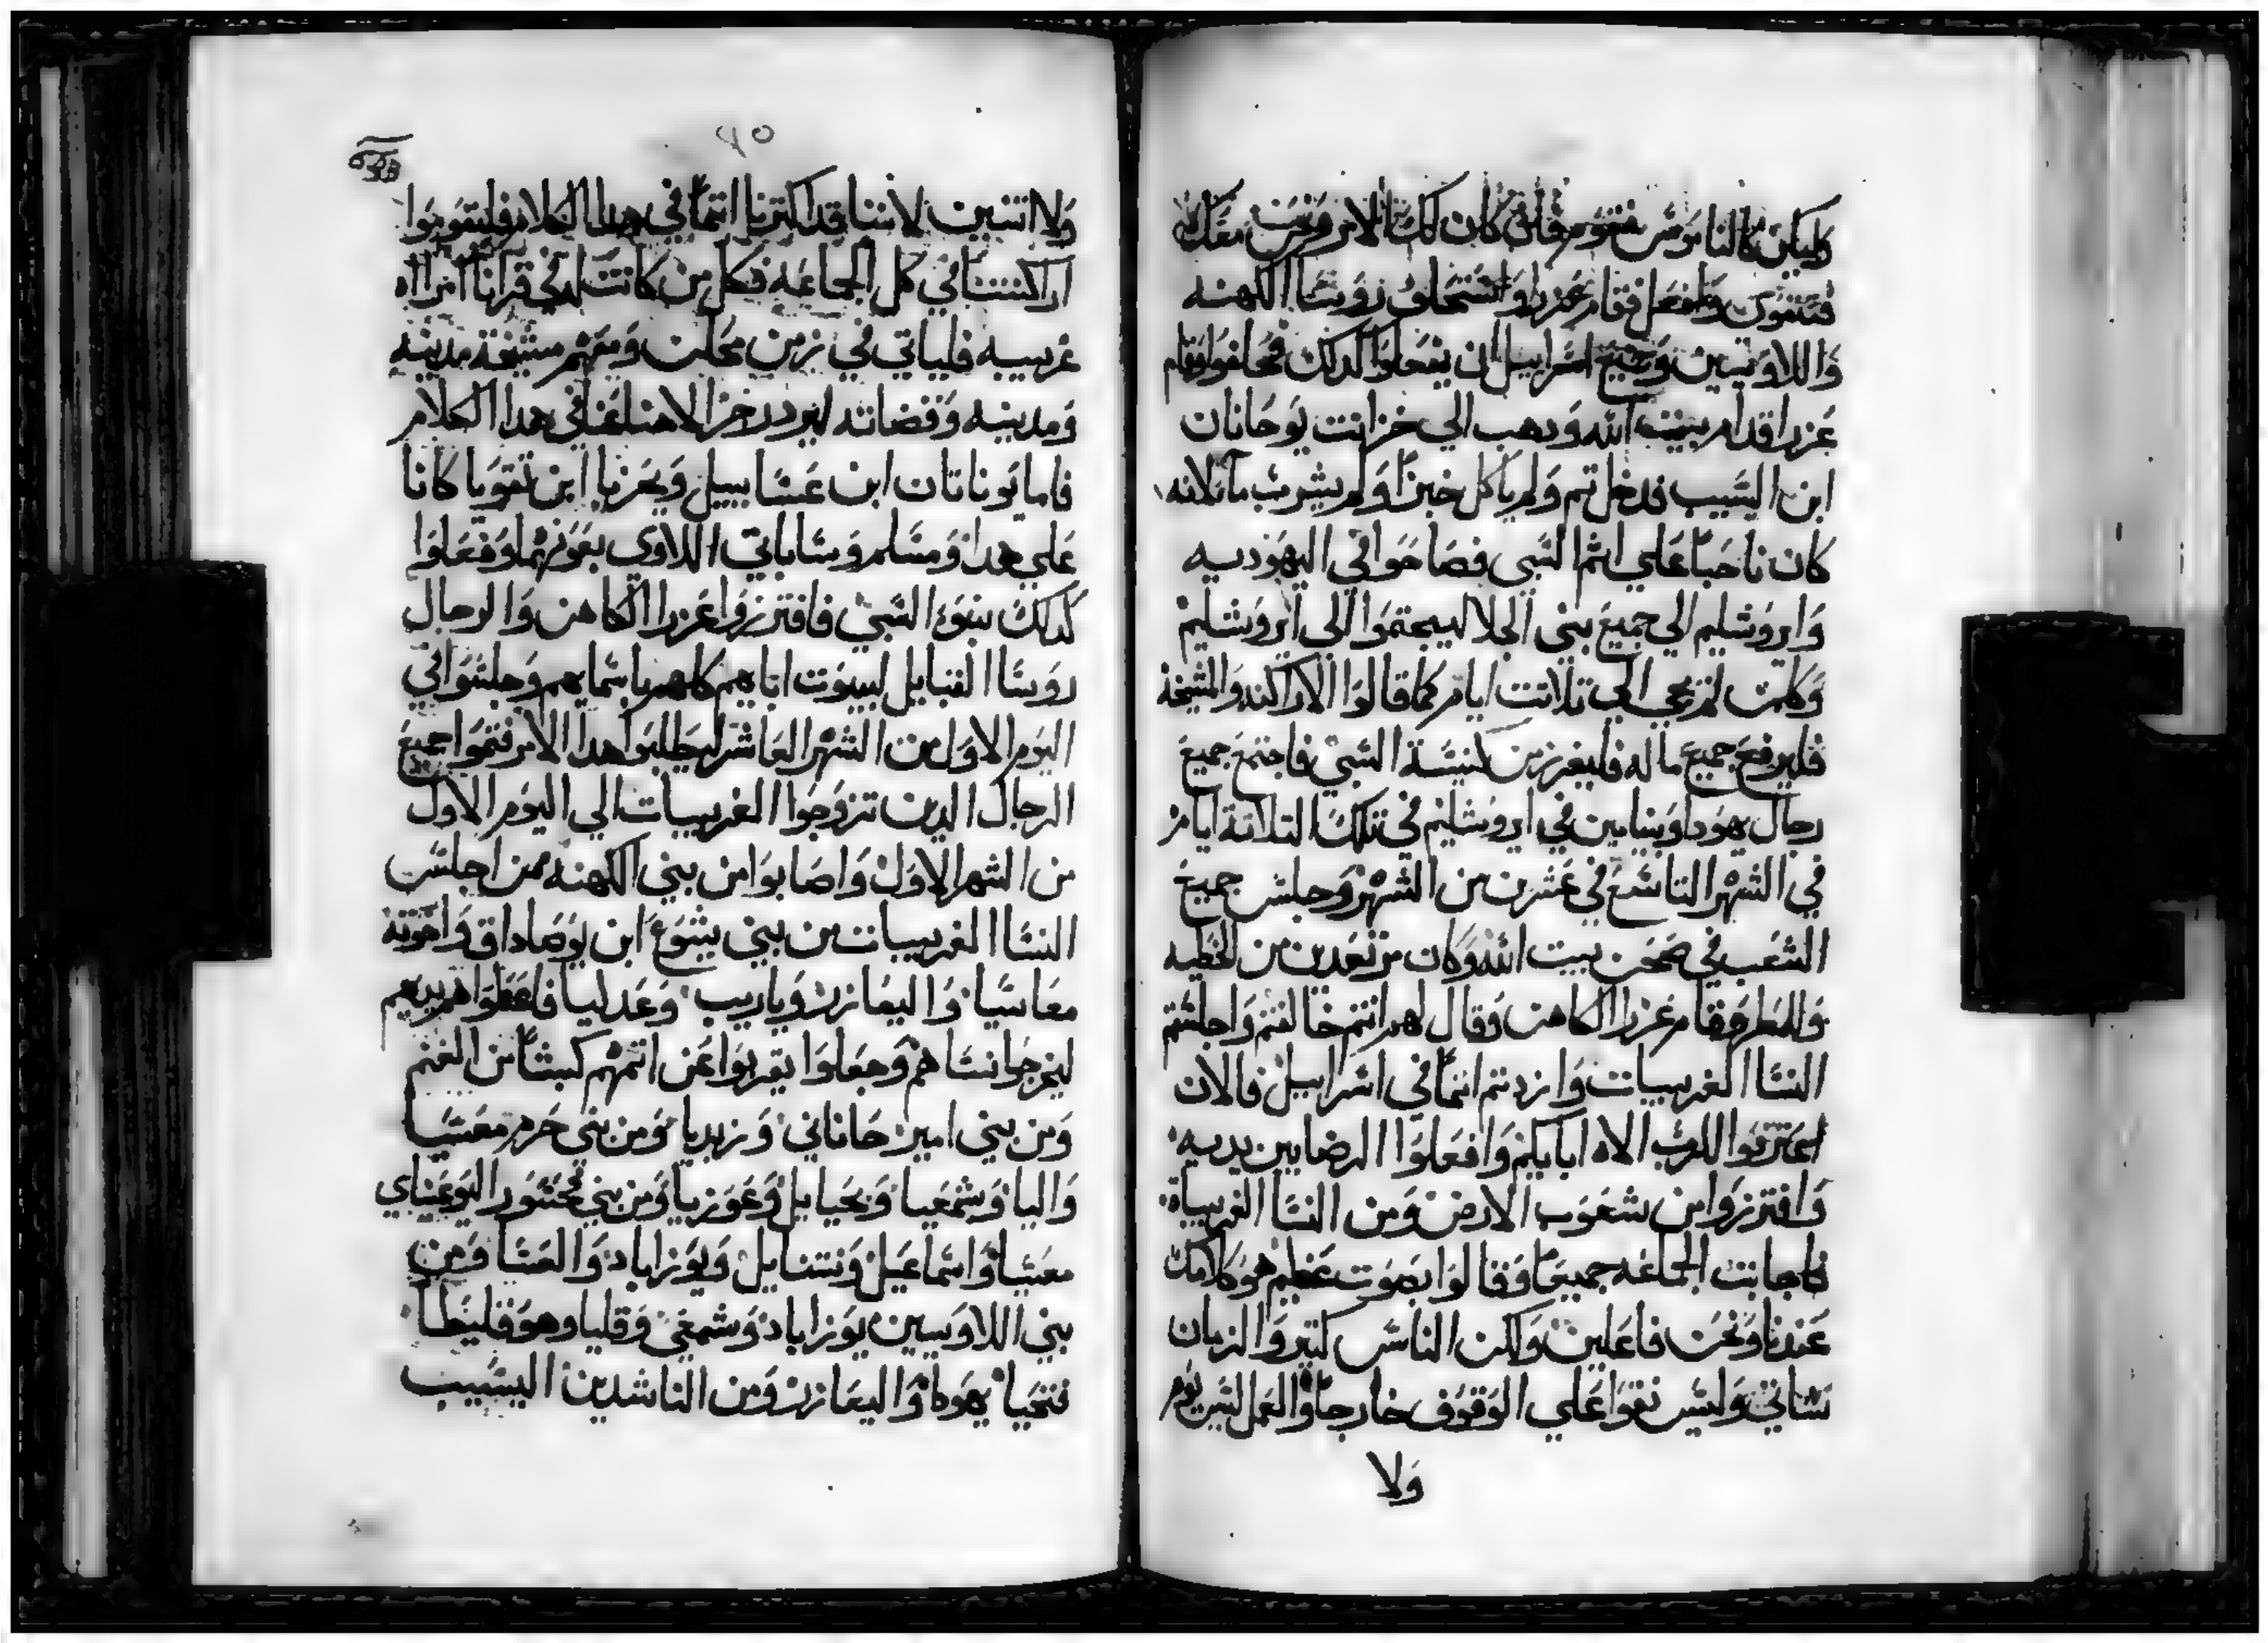 وليكن كالناموس فتقوم فان كان لك الامر ونحن معك
فتتقوى وتفعل فقام عزرا واستحلف روسا الكهنه
واللاويين وجميع اسراييل ان يفعلوا كدلك فحلفوا وقام
عزرا قدام بيت الله ودهب الي خزانت يوحانان
ابن اليسيب فدخل تم ولم ياكل خبزا ولم يشرب ما لانه
كان ناحبا علي اتم السبي فصاحوا في اليهوديه
وايروشليم الي جميع بني الجلا ليجتمعوا الي ايروشليم
وكلمن لم يجي الي تلاتت ايام كما قالوا الاراكنه والمشيخه
فليرفع جميع ماله فليفرز من كنيسة السبي فاجتمع جميع
رجال يهودا وبنيامين في ايروشليم في تلك التلاتة ايام
في الشهر التاسع في عشرين من الشهر وجلس جميع
الشعب في صحن بيت الله وكان مرتعدين من الخطيه
وللمطر وقام عزرا الكاهن وقال لهم انتم خالفتم واجلستم
النسا الغريبيات وازدتم اتما في اسراييل فالان
اعترفوا للرب الاه ابايكم وافعلوا الرضا بين يديه
وافترزوا من شعوب الارض ومن النسا الغريبياة
فاجابت الجماعه جميعا وقالوا بصوت عظيم هو كلامك
عندنا ونحن فاعلين ولكن الناس كتير والزمان
شتاتي وليس نقوا علي الوقوف خارجا والعمل ليس يوم
ولا
٩٥
ولا اتنين لاننا قد اكترنا اتما في هدا الكلام فليقوموا
اراكنتنا في كل الجماعه فكل من كانت له في قرانا امراه
غريبيه فلياتي في زمن محلت ومعهم مشيخة مدينه
ومدينه وقضاته ليردد رجز الاهنا عنا في هدا الكلام
فاما يوناتان ابن عساييل ويحزيا ابن تقويا كانا
علي هدا ومسلم وساباتي اللاوي بعونهما وفعلوا
كدلك بنوا السبي فافترزوا عزرا الكاهن والرجال
روسا القبايل لبيوت اباهيم كلهم باسمايهم وجلسوا في
اليوم الاول من الشهر العاشر ليطلبوا هدا الامر فتموا جميع
الرجال الدين تزوجوا الغريبيات الي اليوم الاول
من الشهر الاول واصابوا من بني الكهنه ممن اجلس
النسا الغريبيات من بني يشوع ابن يوصاداق واخوته
معاسيا واليعازر وياريب وعدليا فاعطوا هم يديهم
ليخرجوا نساهم وجعلوا يقربوا عن اتمهم كبشا من الغنم
ومن بني امير حاناني وزبديا ومن بني حرم معسيا
واليا وشمعيا ويحياييل وعوزيا ومن بني فحسور اليوعيناي
معسيا واسماعيل ونتناييل ويوزاباد والعسا ومن
بني اللاويين يوزاباد وشمعي وقليا وهو قليطا
فتحيا يهودا واليعازر ومن الناشدين اليسيب